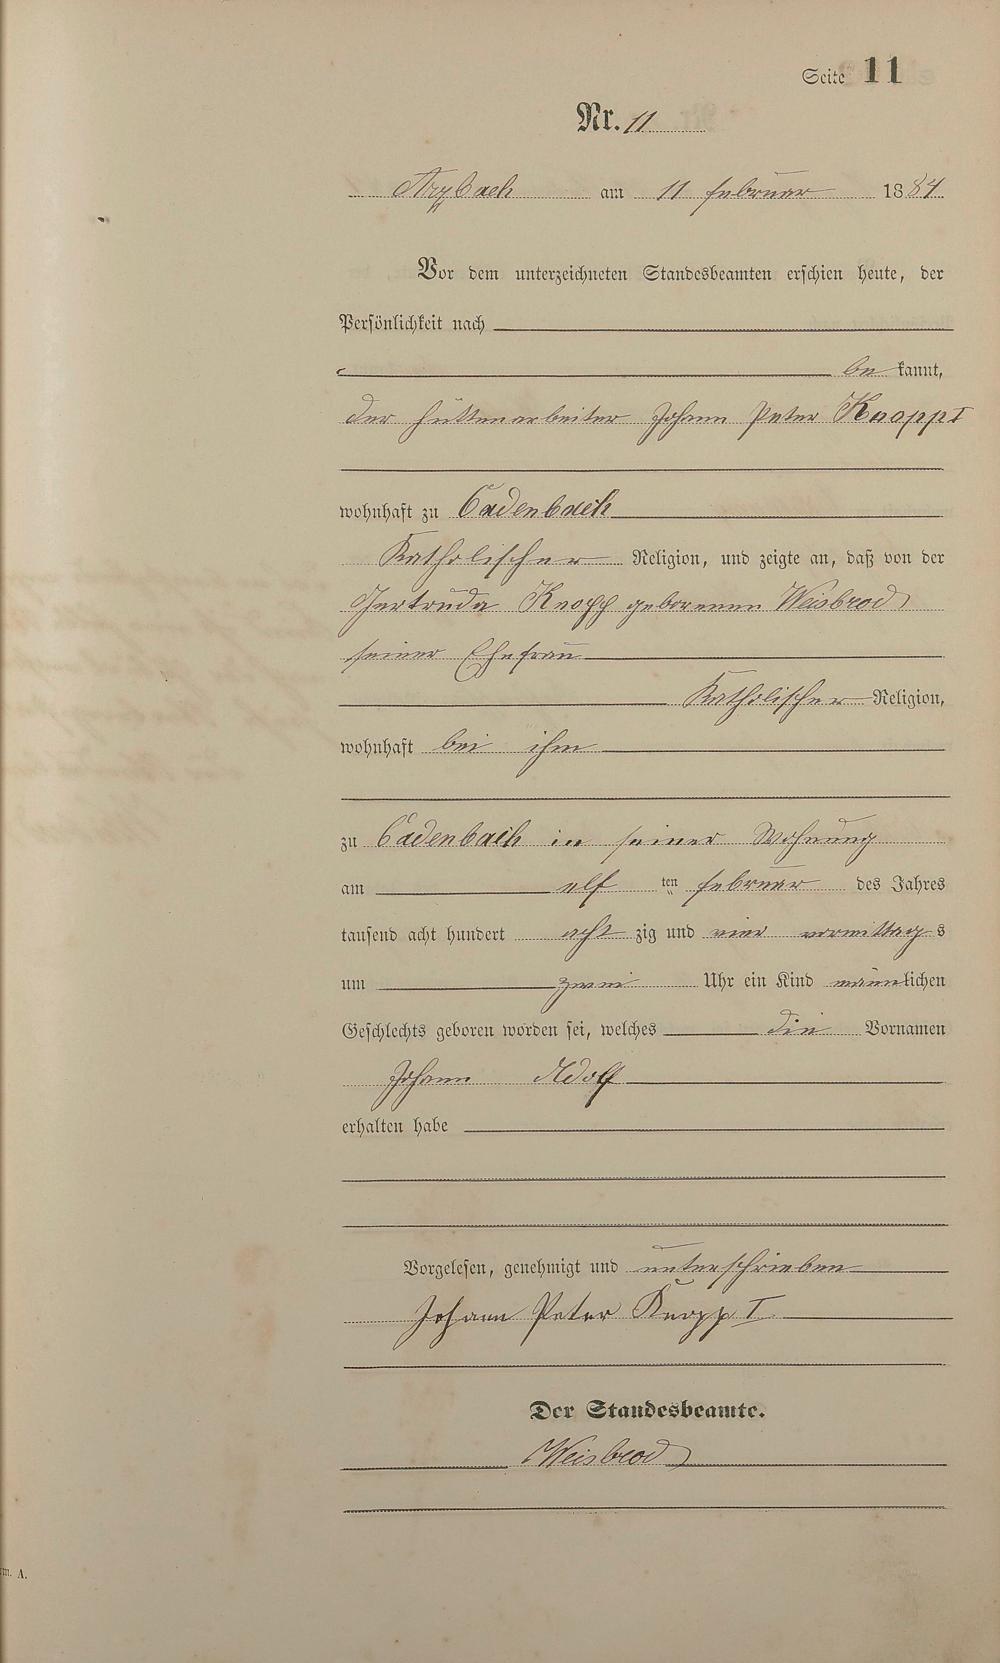 Seite 11
Nr. 11
Arzbach am 11 Februar 1884
Vor dem unterzeichneten Standesbeamten erschien heute, der
Persönlichkeit nach
be kannt,
der Hüttenarbeiter Johann Peter Knopp I
wohnhaft zu Cadenbach
Katholischer Religion, und zeigte an, daß von der
Gertruda Knopp geborenen Weisbrod
seiner Ehefrau
Katholischer Religion,
wohnhaft bei ihm
zu Cadenbach in seiner Wohnung
am elf ten Februar des Jahres
tausend acht hundert acht zig und vier vormittag s
um zwei Uhr ein Kind männlichen
Geschlechts geboren worden sei, welches die Vornamen
Johann Adolf
erhalten habe
Vorgelesen, genehmigt und unterschrieben
Johann Peter Knopp I
Der Standesbeamte.
Weisbrod
m. A.